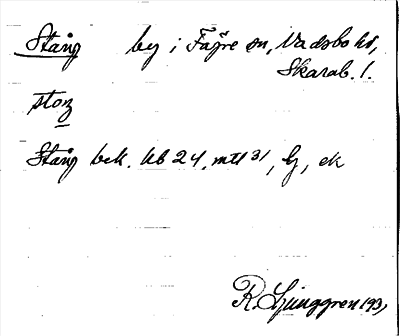 Stång by i Fägre sn, Vadsbo hd,
Skarab. l.
stɔŋ
Stång bek. kb 24, mtl 31, by, ek
R. Ljunggren 193